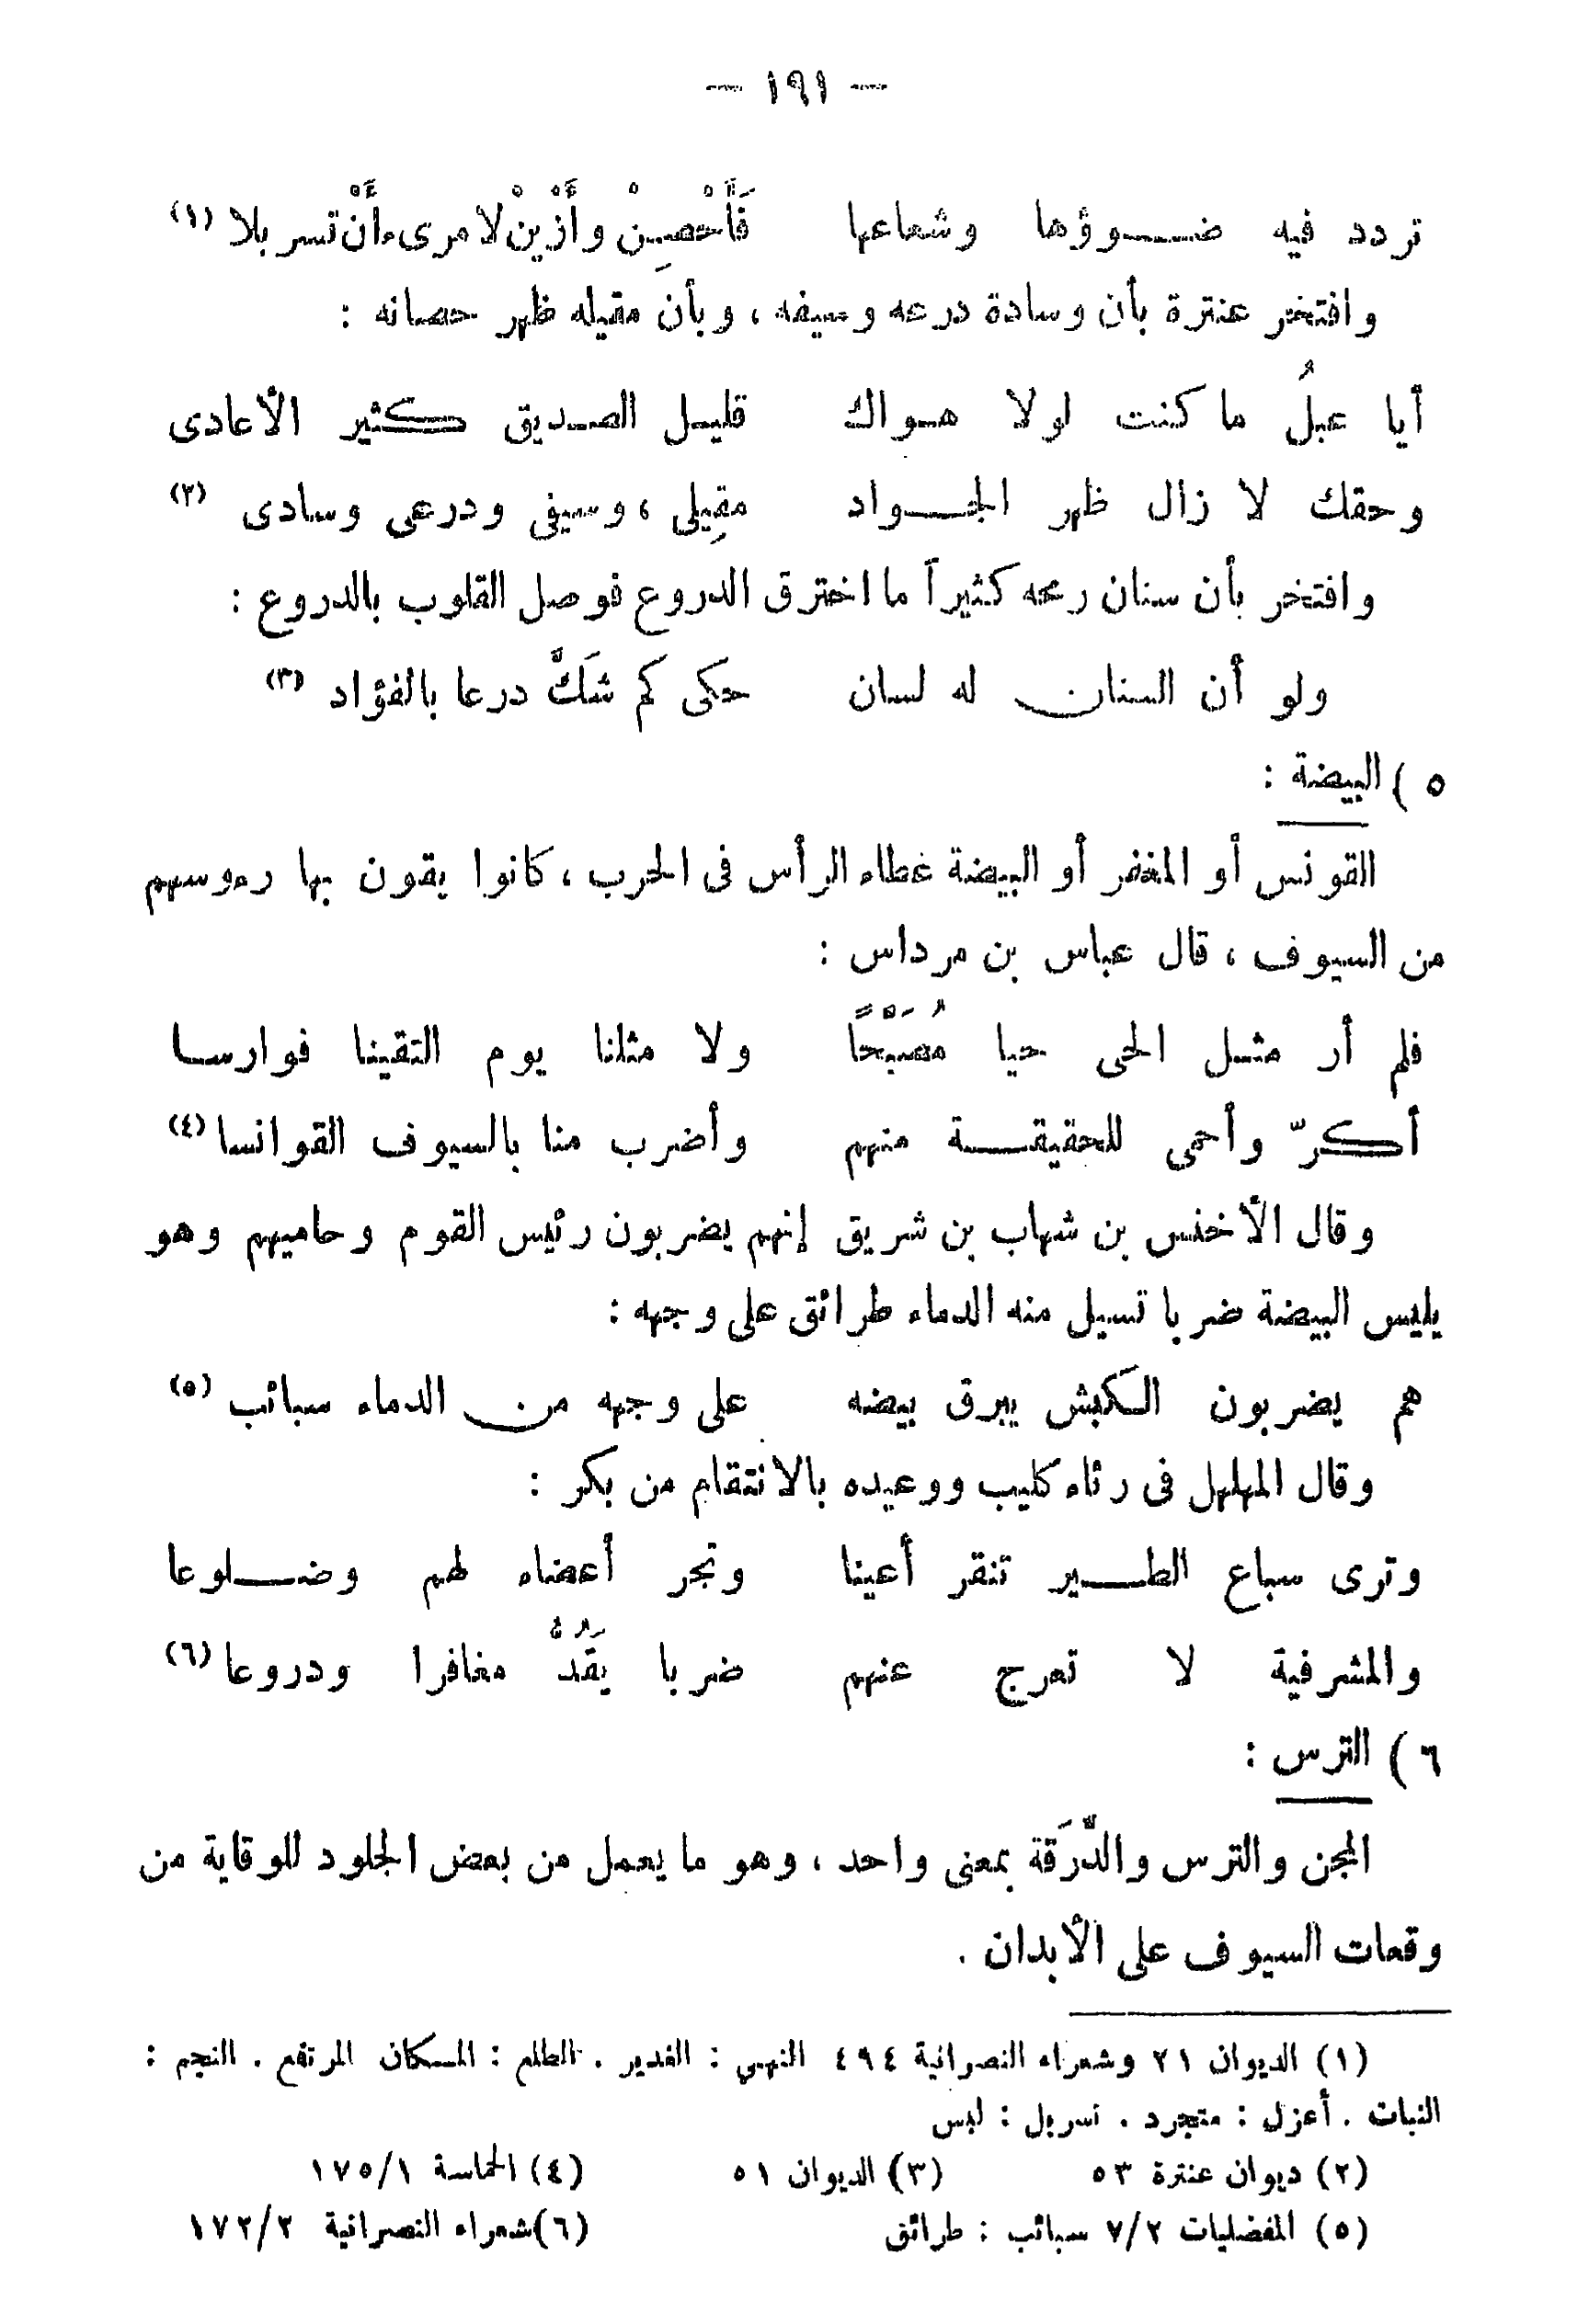 — ١٩١ —
تردد فيه ضـــوؤها وشعاعها فَأَحْصِنْ وأَزْيِنْ لامرىء أَنْ تسربلا (١)
وافتخر عنترة بأن وسادة درعه وسيفه ، وبأن مقيله ظهر حصانه :
أيا عبلُ ما كنت لولا هـواك قليـل الصـديق كثير الأعادى
وحقك لا زال ظهر الجـــواد مقِيلى ، وسيفى ودرعى وسادى (٢)
وافتخر بأن سنان رمحه كثيراً ما اخترق الدروع فوصل القلوب بالدروع :
ولو أن السنان له لسان حكى كم شَكَّ درعا بالفؤاد (٣)
٥ ) البيضة :
القونس أو المغفر أو البيضة غطاء الرأس فى الحرب ، كانوا يقون بها رءوسهم
من السيوف ، قال عباس بن مرداس :
فلم أر مثـل الحى حيا مُصَبَّحًا ولا مثلنا يوم التقينا فوارسـا
أكرّ وأحمى للحقيقـــة منهم وأضرب منا بالسيوف القوانسا (٤)
وقال الأخنس بن شهاب بن شريق إنهم يضربون رئيس القوم وحاميهم وهو
يلبس البيضة ضربا تسيل منه الدماء طرائق على وجهه :
هم يضربون الكبش يبرق بيضه على وجهه من الدماء سبائب (٥)
وقال المهلهل فى رثاء كليب ووعيده بالانتقام من بكر :
وترى سباع الطـــير تنقر أعينا وتجر أعضاء لهم وضـــلوعا
والمشرفية لا تعرج عنهم ضربا يَقُدُّ مغافرا ودروعا (٦)
٦ ) الترس :
المجن والترس والدَّرَقة بمعنى واحد ، وهو ما يعمل من بعض الجلود للوقاية من
وقعات السيوف على الأبدان .
(١) الديوان ٢١ وشعراء النصرانية ٤٩٤ النهى : الغدير . الطلع : المـكان المرتفع . النجم :
النبات . أعزل : متجرد . تسربل : لبس
(٢) ديوان عنترة ٥٣ (٣) الديوان ٥١ (٤) الحماسة ١/١٧٥
(٥) المفضليات ٧/٢ سبائب : طرائق (٦) شعراء النصرانية ١٧٢/٢